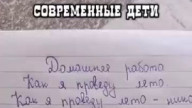 СОВРЕМЕННЫЕ ДЕТИ
Домашняя работа
Как я проведу лето.
Как я проведу лето -